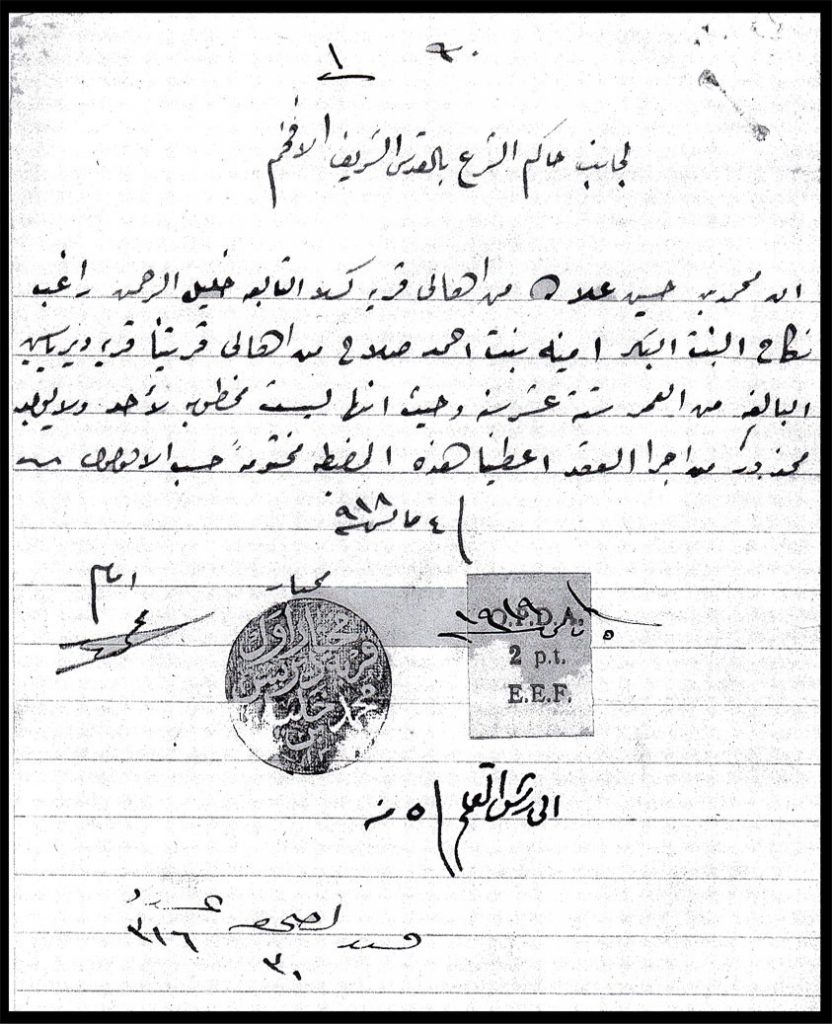 ٣٠
١
لجانب حاكم الشرع بالقدس الشريف الافخم
ان محمد بن حسين علان من اهالى قرية كسلا التابعه خليل الرحمن راغب
نكاح البنت البكر امينه بنت احمد صلاح من اهالى قريتنا قرية ديرياسين
البالغه من العمر ستة عشر سنه وحيث انها ليست مخطوبه لأحد ولا يوجد
محذور من اجرا العقد اعطينا هذه المضبطه مختومة حسب الاصول
٤ مارس سنة ٩١٨
امام
مختار
مختار اول
قرية ديريسين
محمد خليل
O.P.D.A.
2 p.t.
E.E.F.
١٩١٩
الى رئيس القلم ٥ منه
قيد
عدد
٣١٦
٣٠